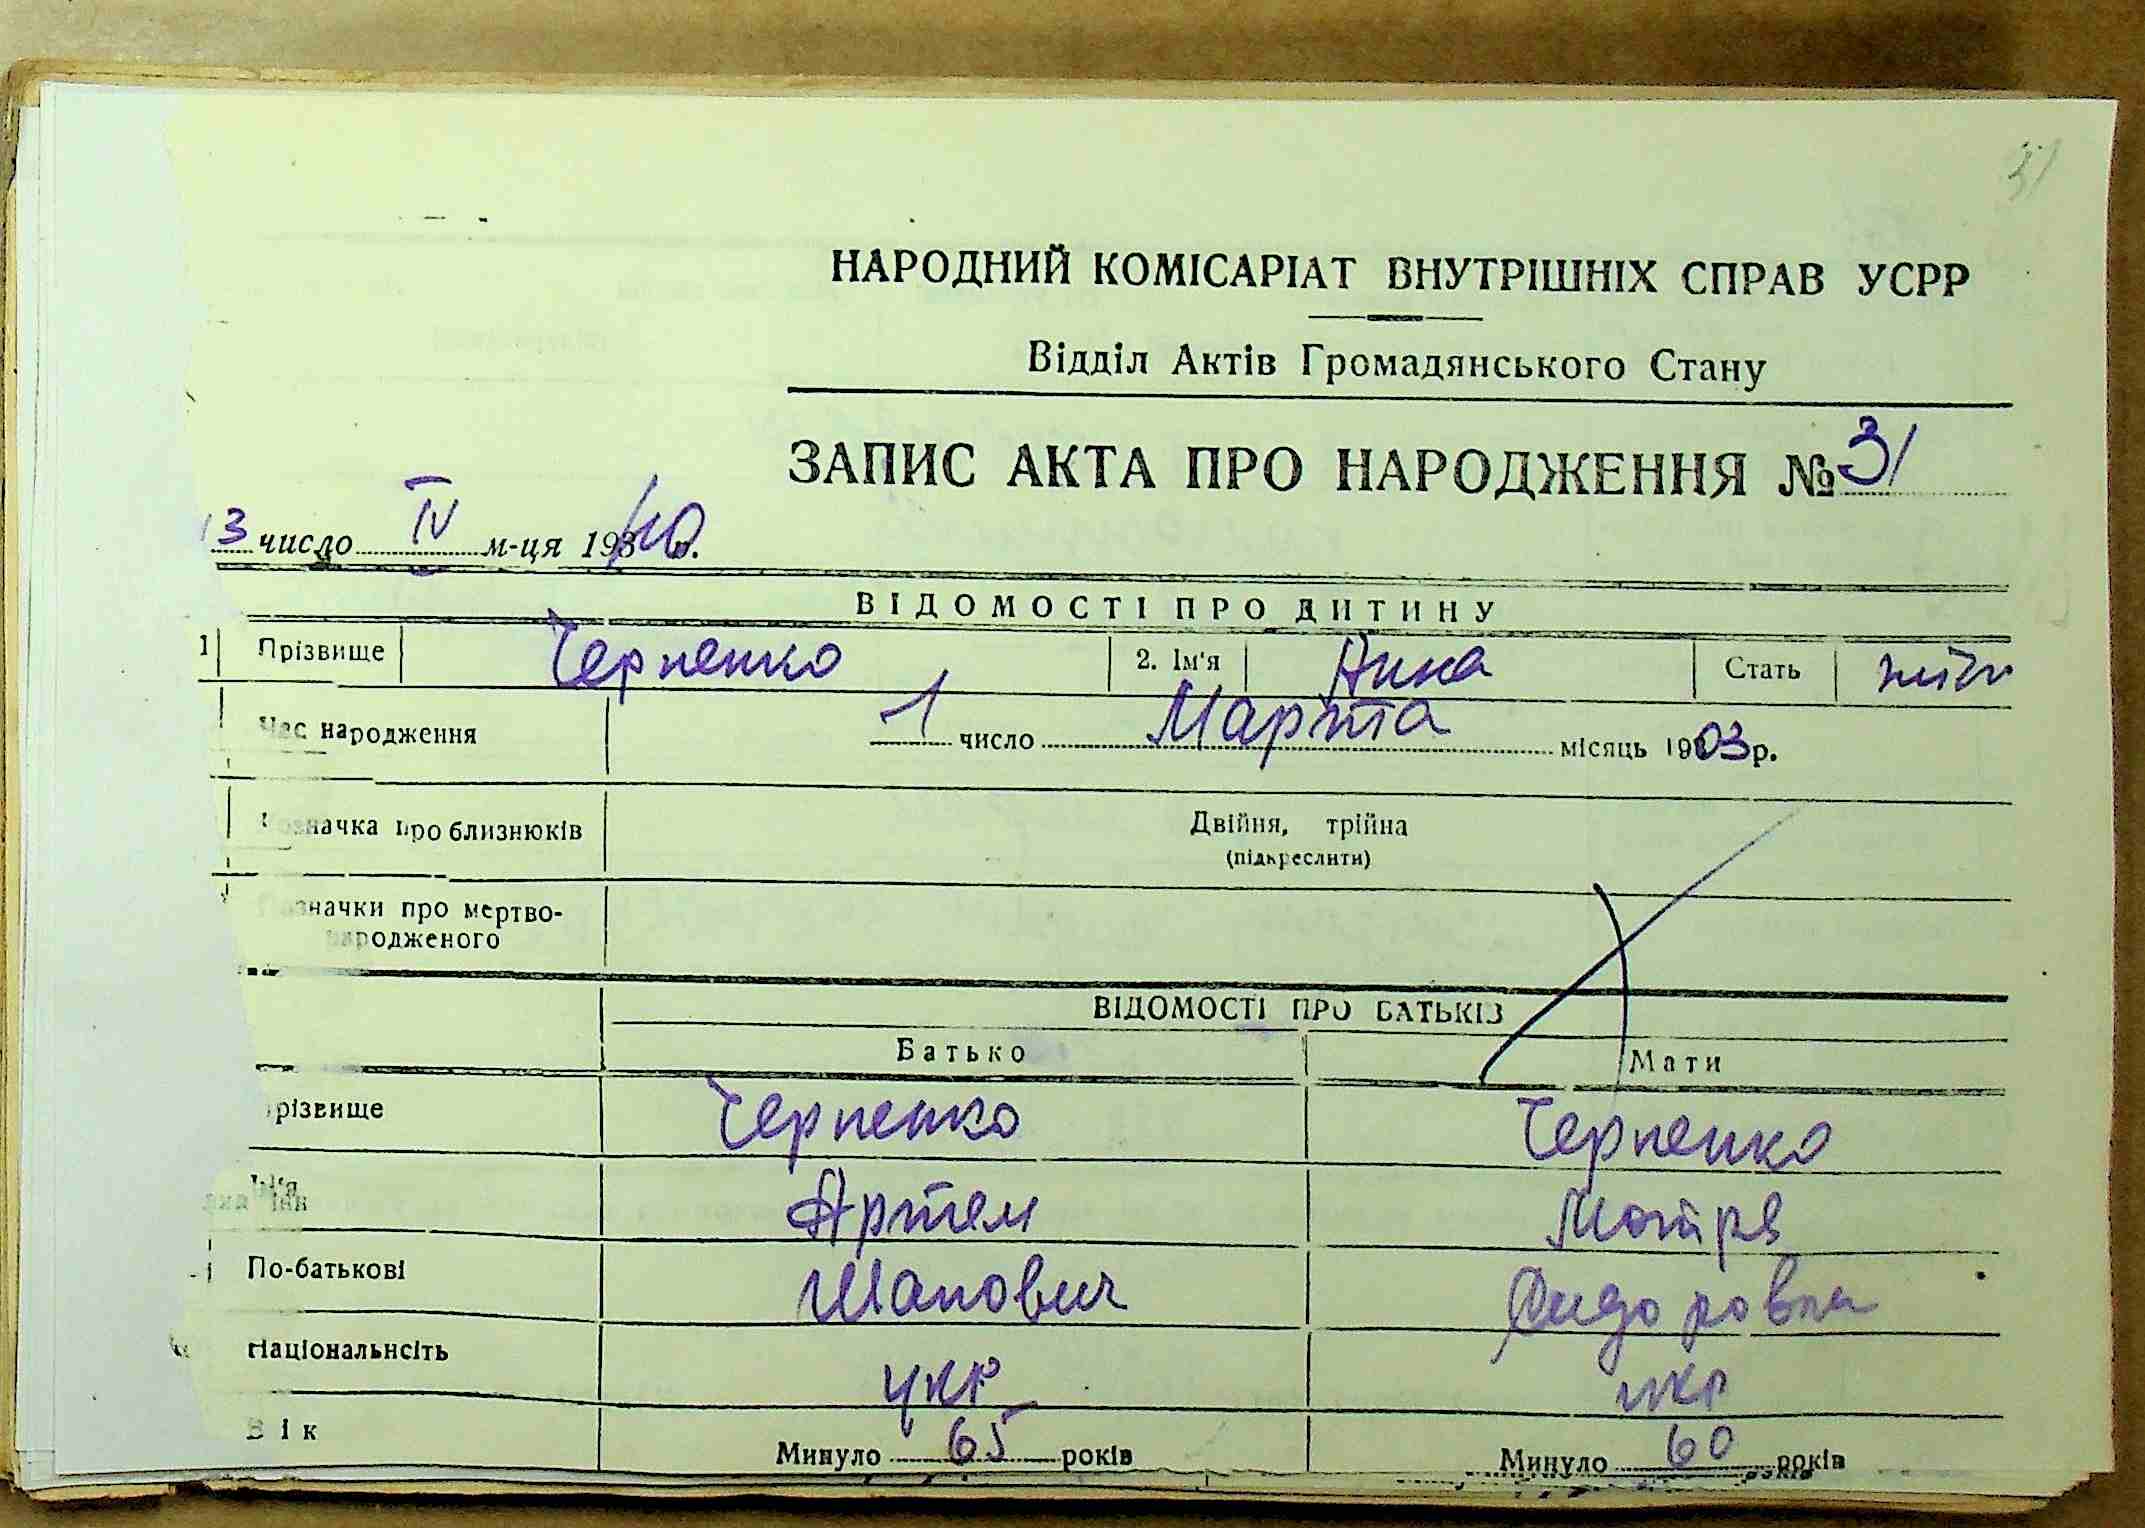 31
НАРОДНИЙ КОМІСАРІАТ ВНУТРІШНІХ СПРАВ УСРР
Відділ Актів Громадянського Стану
ЗАПИС АКТА ПРО НАРОДЖЕННЯ № 31
13 число IV м-ця 1940 р.
ВІДОМОСТІ ПРО ДИТИНУ
1 Прізвище Черненко 2. Ім'я Анна Стать жін
Час народження 1 число Марта місяць 1903 р.
Позначка про близнюків Двійня, трійна
(підкреслити)
Позначки про мертво-
народженого
ВІДОМОСТІ ПРО БАТЬКІВ
Батько Мати
Прізвище Черненко Черненко
Ім'я Артем Мотря
По-батькові Сидоровна
Національнсіть укр укр
Вік Минуло 65 років Минуло 60 років